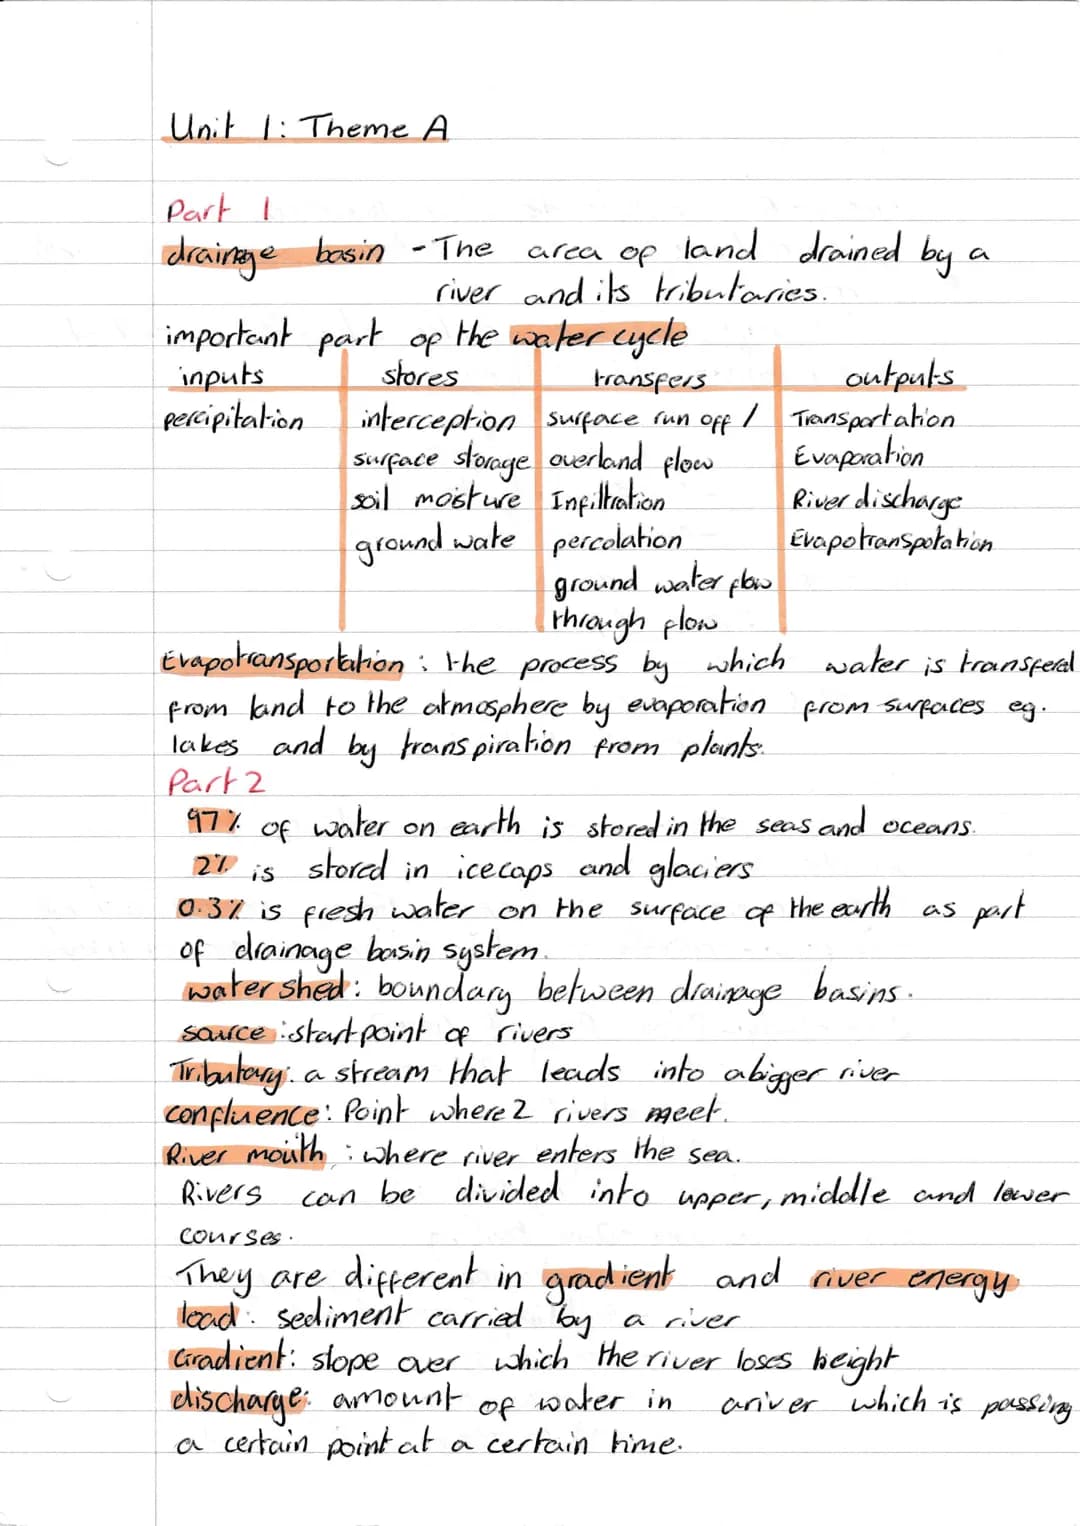 Unit 1: Theme A
Part 1
drainage basin - The area of land drained by a
river and its tributaries.
important part of the water cycle
inputs stores transfers outputs
percipitation interception surface run off / Transportation
surface storage overland flow Evaporation
soil moisture Infiltration River discharge
ground wate percolation Evapotranspotation
ground water flow
through flow
Evapotransportation : the process by which water is transfered
from land to the atmosphere by evaporation from surfaces eg.
lakes and by transpiration from plants.
Part 2
97% of water on earth is stored in the seas and oceans.
2% is stored in icecaps and glaciers
0.3% is fresh water on the surface of the earth as part
of drainage basin system.
watershed: boundary between drainage basins.
source : start point of rivers
Tributary: a stream that leads into a bigger river
confluence: Point where 2 rivers meet.
River mouth : where river enters the sea.
Rivers can be divided into upper, middle and lower
courses.
They are different in gradient and river energy
load: sediment carried by a river
Gradient: slope over which the river loses height
discharge: amount of water in a river which is passing
a certain point at a certain time.